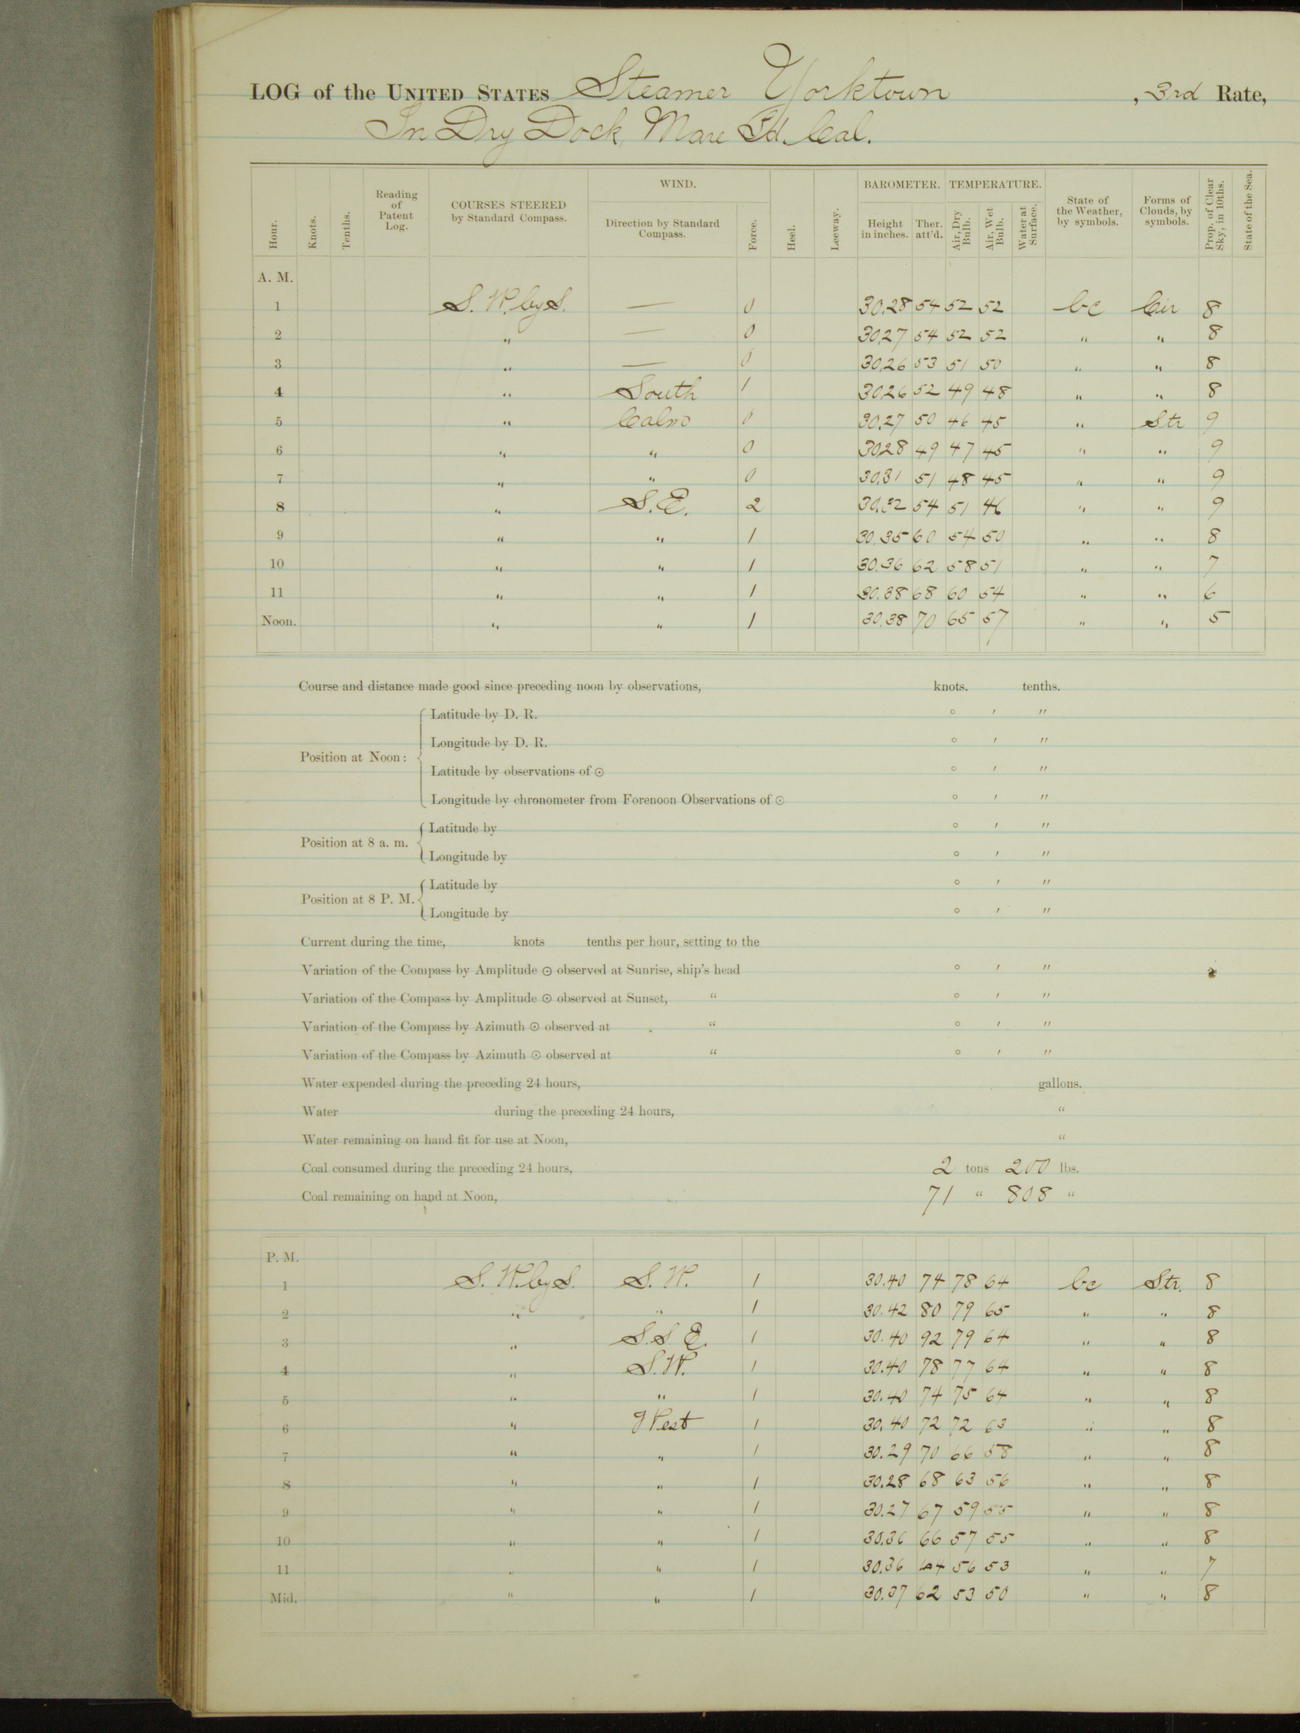 LOG of the UNITED STATES Steamer Yorktown, 3rd Rate,
In Dry Dock, Mare Id. Cal.
Hour. Knots. Tenths. Reading of Patent Log. COURSES STEERED by Standard Compass. WIND. Direction by Standard Compass. Force. Heel. Leeway. BAROMETER. Height in inches. Ther. att'd. TEMPERATURE. Air, Dry Bulb. Air, Wet Bulb. Water at Surface. State of the Weather, by symbols. Forms of Clouds, by symbols. Prop. of Clear Sky, in 10ths. State of the Sea.
A. M.
1 S. W. by S. — 0 30.28 54 52 52 bc Cir 8
2 " — 0 30.27 54 52 52 " " 8
3 " — 0 30.26 53 51 50 " " 8
4 " South 1 30.26 52 49 48 " " 8
5 " Calm 0 30.27 50 46 45 " Str 9
6 " " 0 30.28 49 47 45 " " 9
7 " " 0 30.31 51 48 45 " " 9
8 " S. E. 2 30.32 54 51 46 " " 9
9 " " 1 30.35 60 54 50 " " 8
10 " " 1 30.36 62 58 51 " " 7
11 " " 1 30.38 68 60 54 " " 6
Noon. " " 1 30.38 70 65 57 " " 5
Course and distance made good since preceding noon by observations, knots. tenths.
Position at Noon:
Latitude by D. R. ° ′ ″
Longitude by D. R. ° ′ ″
Latitude by observations of ☉ ° ′ ″
Longitude by chronometer from Forenoon Observations of ☉ ° ′ ″
Position at 8 a. m.
Latitude by ° ′ ″
Longitude by ° ′ ″
Position at 8 P. M.
Latitude by ° ′ ″
Longitude by ° ′ ″
Current during the time, knots tenths per hour, setting to the
Variation of the Compass by Amplitude ☉ observed at Sunrise, ship's head ° ′ ″
Variation of the Compass by Amplitude ☉ observed at Sunset, " ° ′ ″
Variation of the Compass by Azimuth ☉ observed at " ° ′ ″
Variation of the Compass by Azimuth ☉ observed at " ° ′ ″
Water expended during the preceding 24 hours, gallons.
Water during the preceding 24 hours, "
Water remaining on hand fit for use at Noon, "
Coal consumed during the preceding 24 hours, 2 tons 200 lbs.
Coal remaining on hand at Noon, 71 " 808 "
P. M.
1 S. W. by S. S. W. 1 30.40 74 78 64 bc Str. 8
2 " " 1 30.42 80 79 65 " " 8
3 " S. S. E. 1 30.40 92 79 64 " " 8
4 " S. W. 1 30.40 78 77 64 " " 8
5 " " 1 30.40 74 75 64 " " 8
6 " West 1 30.40 72 72 63 " " 8
7 " " 1 30.29 70 66 58 " " 8
8 " " 1 30.28 68 63 56 " " 8
9 " " 1 30.27 67 59 55 " " 8
10 " " 1 30.36 66 57 55 " " 8
11 " " 1 30.36 64 56 53 " " 7
Mid. " " 1 30.37 62 53 50 " " 8